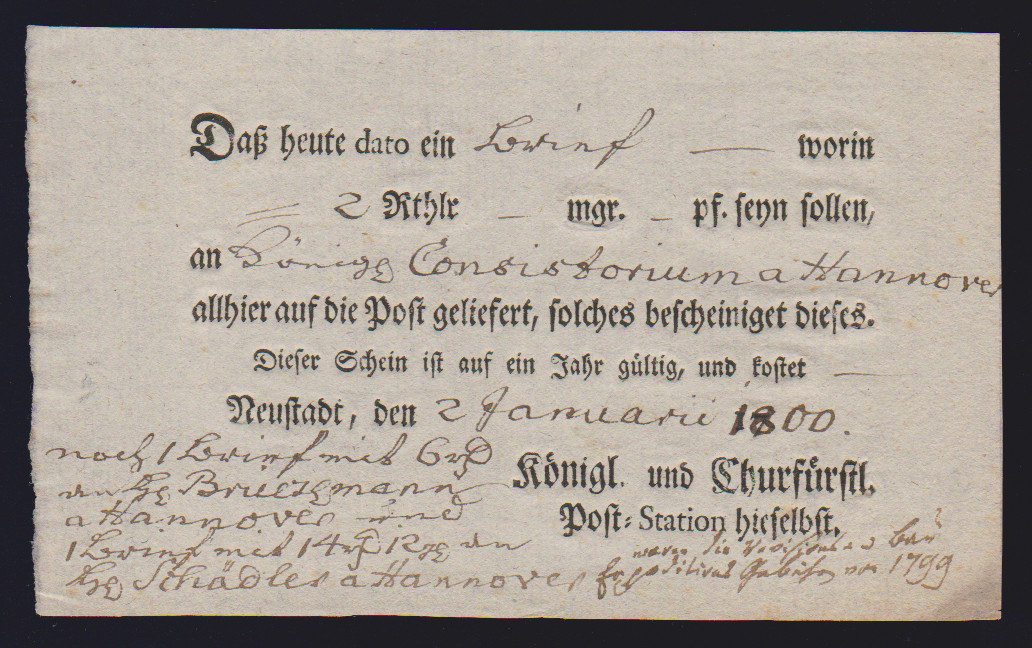 Daß heute dato ein Brief — worin
2 Rthlr — mgr. — pf. seyn sollen,
an Königl Consistorium a Hannover
allhier auf die Post geliefert, solches bescheiniget dieses.
Dieser Schein ist auf ein Jahr gültig, und kostet —
Neustadt, den 2 Januarii 1800.
noch 1 Brief mit 6 rth
an H Bruekmann
a Hannover und
1 Brief mit 14 rth 12 g an
H Schädler a Hannover
Königl. und Churfürstl.
Post-Station hieselbst.
waren die und Bau
von 1799